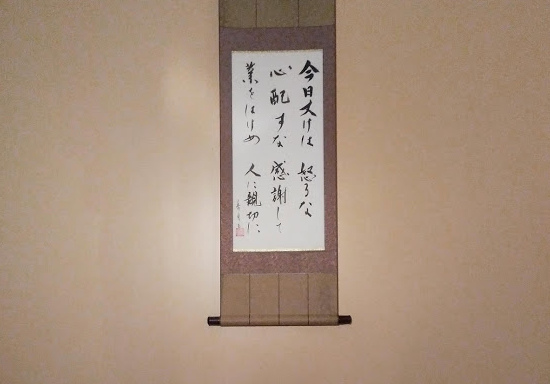 今日丈けは 怒るな
心配すな 感謝して
業をはけめ 人に親切に